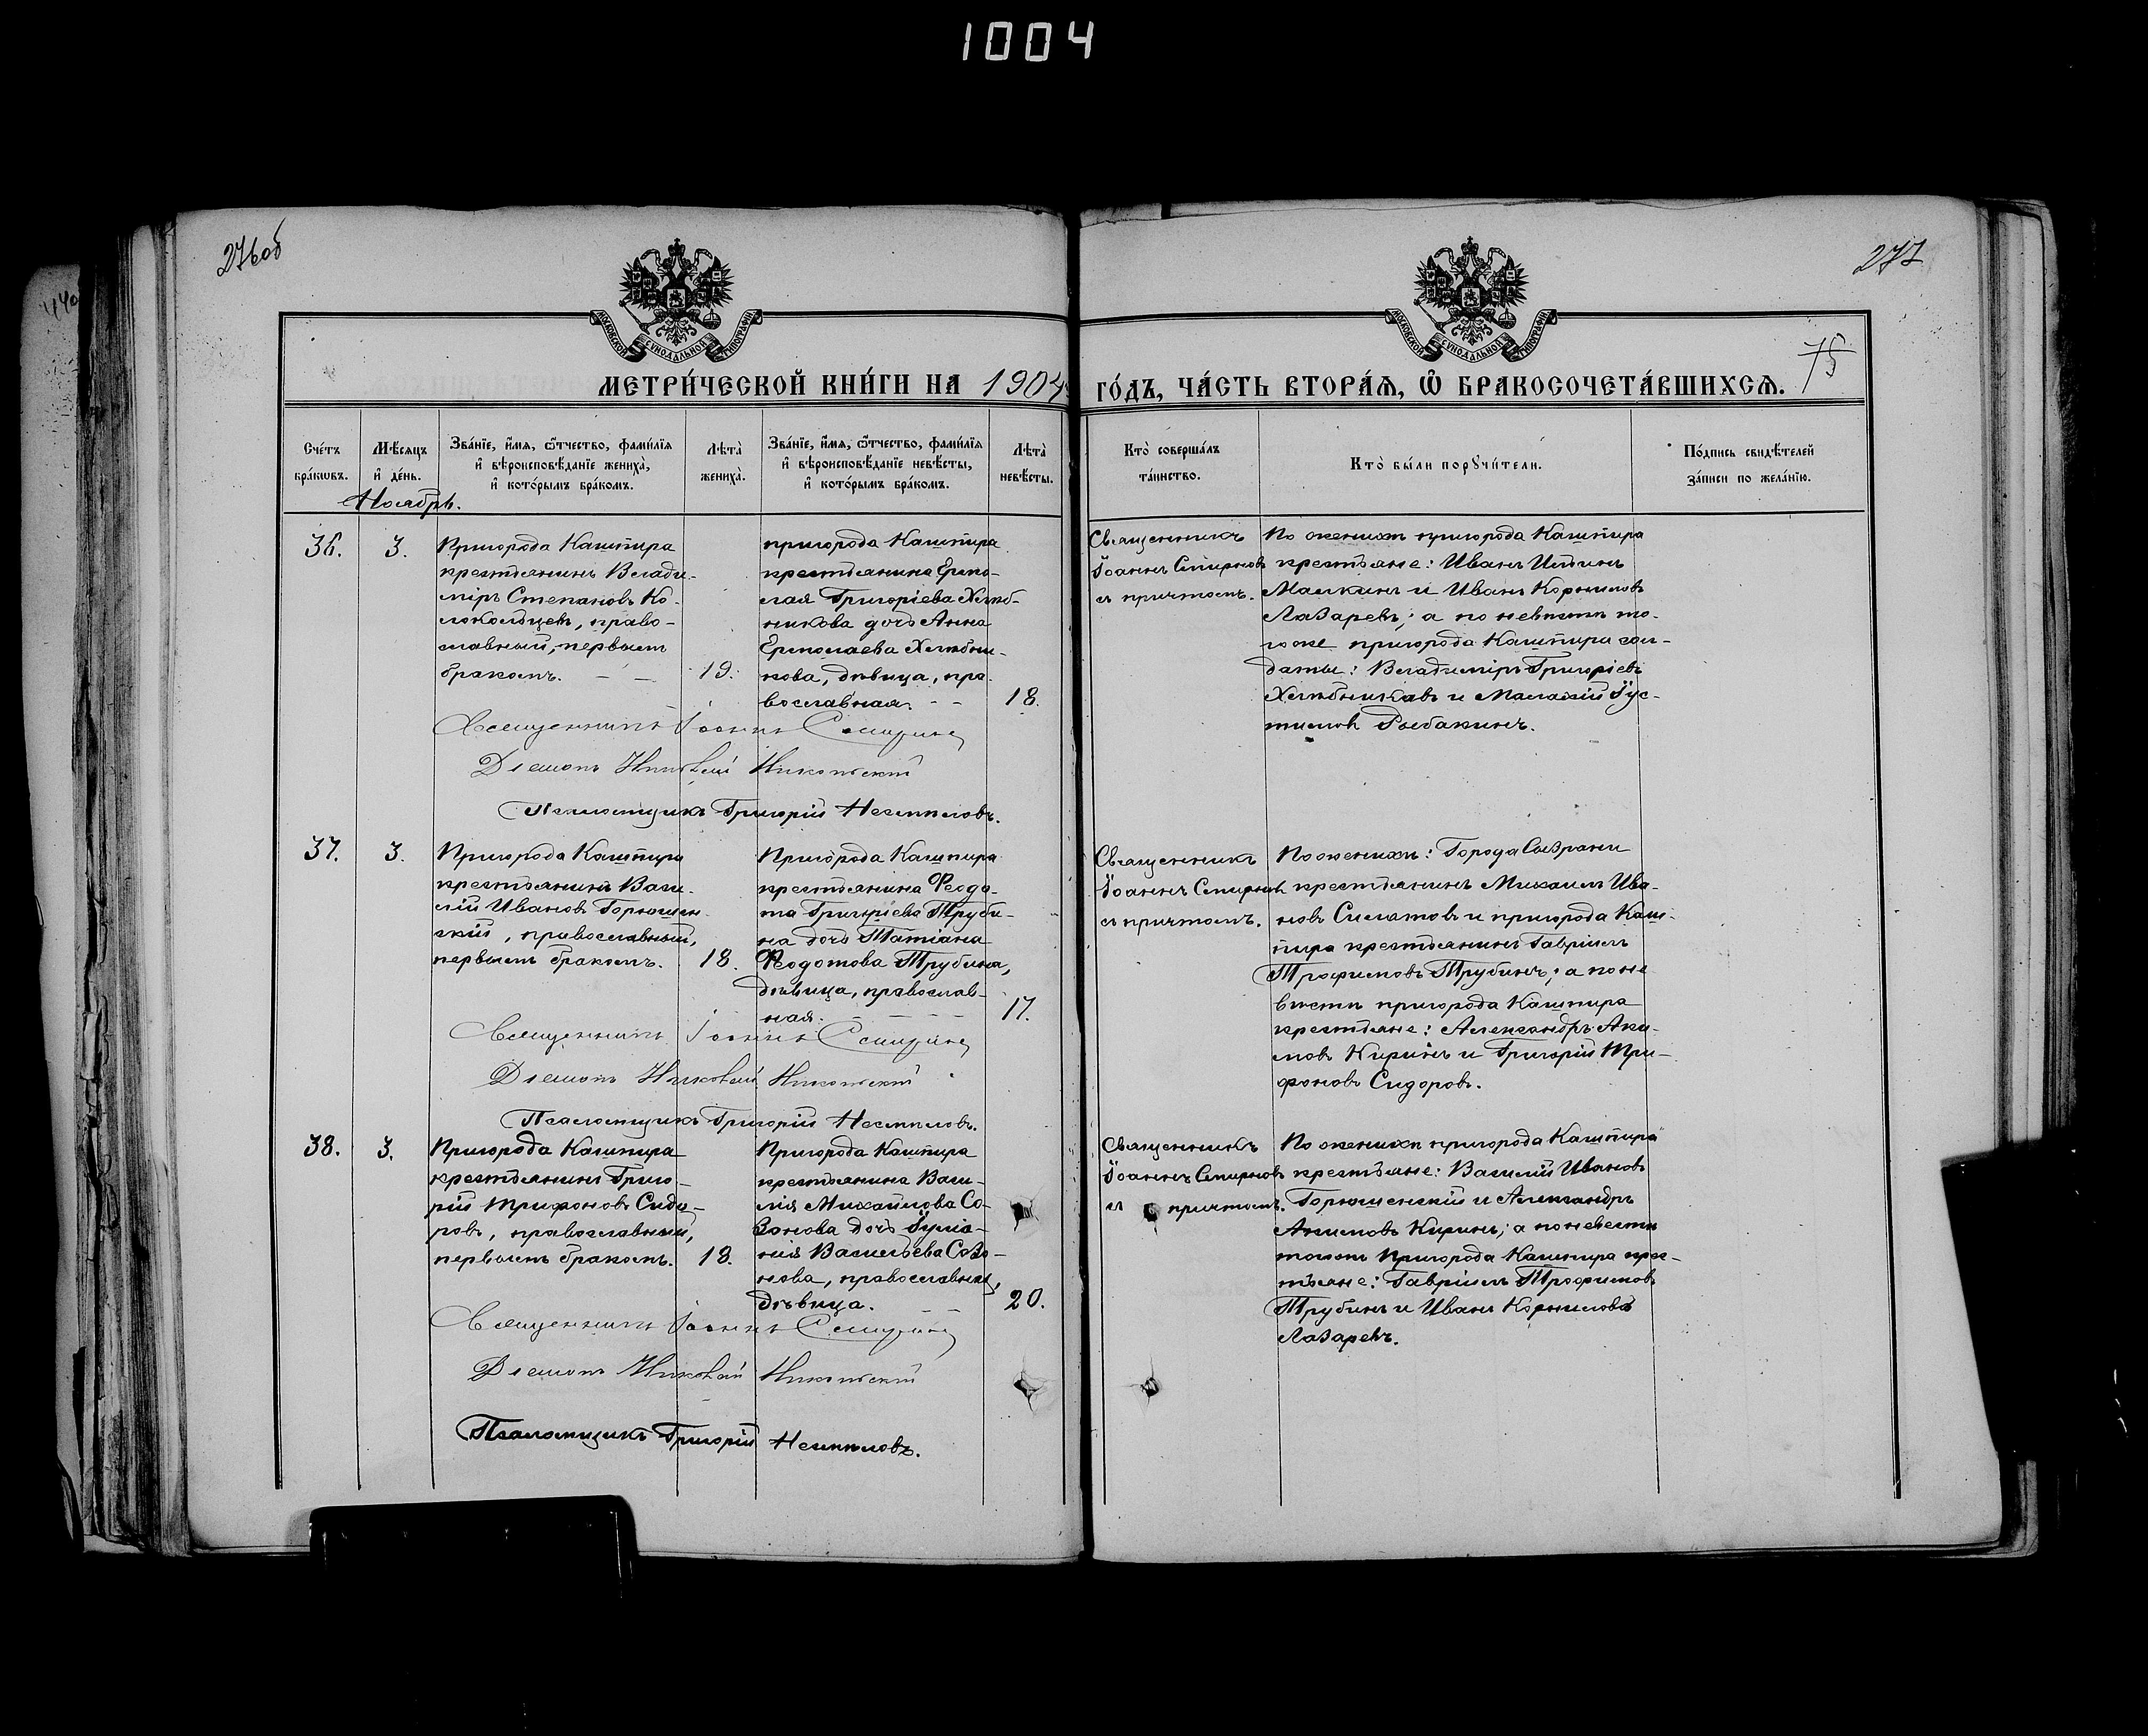 1004
276об
277
75
МОСКОВСКОЙ СУНОДАЛЬНОЙ ТИПОГРАФІИ
МОСКОВСКОЙ СУНОДАЛЬНОЙ ТИПОГРАФІИ
МЕТРИ́ЧЕСКОЙ КНИ́ГИ НА 1904 ГО́ДЪ, ЧА́СТЬ ВТОРА́Ѧ, Ѡ҆ БРАКОСОЧЕТА́ВШИХСѦ.
Сче́тъ
бра́кѡвъ.
Мѣ́сѧцъ
и҆ де́нь.
Зва́нїе, и҆́мѧ, ѻ҆́тчество, фами́лїѧ
и҆ вѣроисповѣ́данїе жениха̀,
и҆ кото́рымъ бра́комъ.
Лѣта̀
жениха̀.
Зва́нїе, и҆́мѧ, ѻ҆́тчество, фами́лїѧ
и҆ вѣроисповѣ́данїе невѣ́сты,
и҆ кото́рымъ бра́комъ.
Лѣта̀
невѣ́сты.
Кто̀ соверша́лъ
та́инство.
Кто̀ бы́ли порꙋчи́тели.
По́дпись свидѣ́телей
за́писи по жела́нїю.
Ноябрь.
36.
3.
Пригорода Кашпира
крестьянинъ Влади-
міръ Степановъ Ко-
локольцевъ, право-
славный, первымъ
бракомъ. — —
19.
пригорода Кашпира
крестьянина Ермо-
лая Григоріева Хлѣб-
никова дочь Анна
Ермолаева Хлѣбни-
кова, дѣвица, пра-
вославная. - -
18.
Священникъ
Іоаннъ Смирновъ
съ причтомъ.
По женихѣ пригорода Кашпира
крестьяне: Иванъ
и Иванъ Корниловъ
Лазаревъ; а по невѣстѣ то-
гоже пригорода Кашпира сол-
даты: Владиміръ Григоріевъ
Хлѣбниковъ и Малахій Іус-
тиновъ Рыбакинъ.
Священникъ Іоаннъ Смирновъ
Діаконъ Николай Никольскій
Псаломщикъ Григорій Несмѣловъ.
37.
3.
Пригорода Кашпира
крестьянинъ Васи-
лій Ивановъ Горюшен-
скій, православный,
первымъ бракомъ.
18.
Пригорода Кашпира
крестьянина Феодо-
та Григоріева Труби-
на дочь Татіана
Федотова Трубина,
дѣвица, православ-
ная. - - - -
17.
Священникъ
Іоаннъ Смирновъ
съ причтомъ.
По женихѣ: Города Сызрани
крестьянинъ Михаилъ Ива-
новъ и пригорода Каш-
пира крестьянинъ Гавріилъ
Трофимовъ Трубинъ; а по не
вѣстѣ пригорода Кашпира
крестьяне: Александръ Аки-
мовъ Киринъ и Григорій Три-
фоновъ Сидоровъ.
Священникъ Іоаннъ Смирновъ
Діаконъ Николай Никольскій
Псаломщикъ Григорій Несмѣловъ.
38.
3.
Пригорода Кашпира
крестьянинъ Григо-
рій Трифоновъ Сидо-
ровъ, православный,
первымъ бракомъ.
18.
Пригорода Кашпира
крестьянина Васи-
лія Михайлова Со-
зонова дочь Іуліа-
нія Васильева Созо-
нова, православная,
дѣвица. — —
20.
Священникъ
Іоаннъ Смирновъ
съ причтомъ.
По женихѣ пригорода Кашпира
крестьяне: Василій Ивановъ
Горюшенскій и Александръ
Акимовъ Киринъ; а по невѣстѣ
Пригорода Кашпира крес-
тьяне: Гавріилъ Трофимовъ
Трубинъ и Иванъ Корниловъ
Лазаревъ.
Священникъ Іоаннъ Смирновъ
Діаконъ Николай Никольскій
Псаломщикъ Григорій Несмѣловъ.